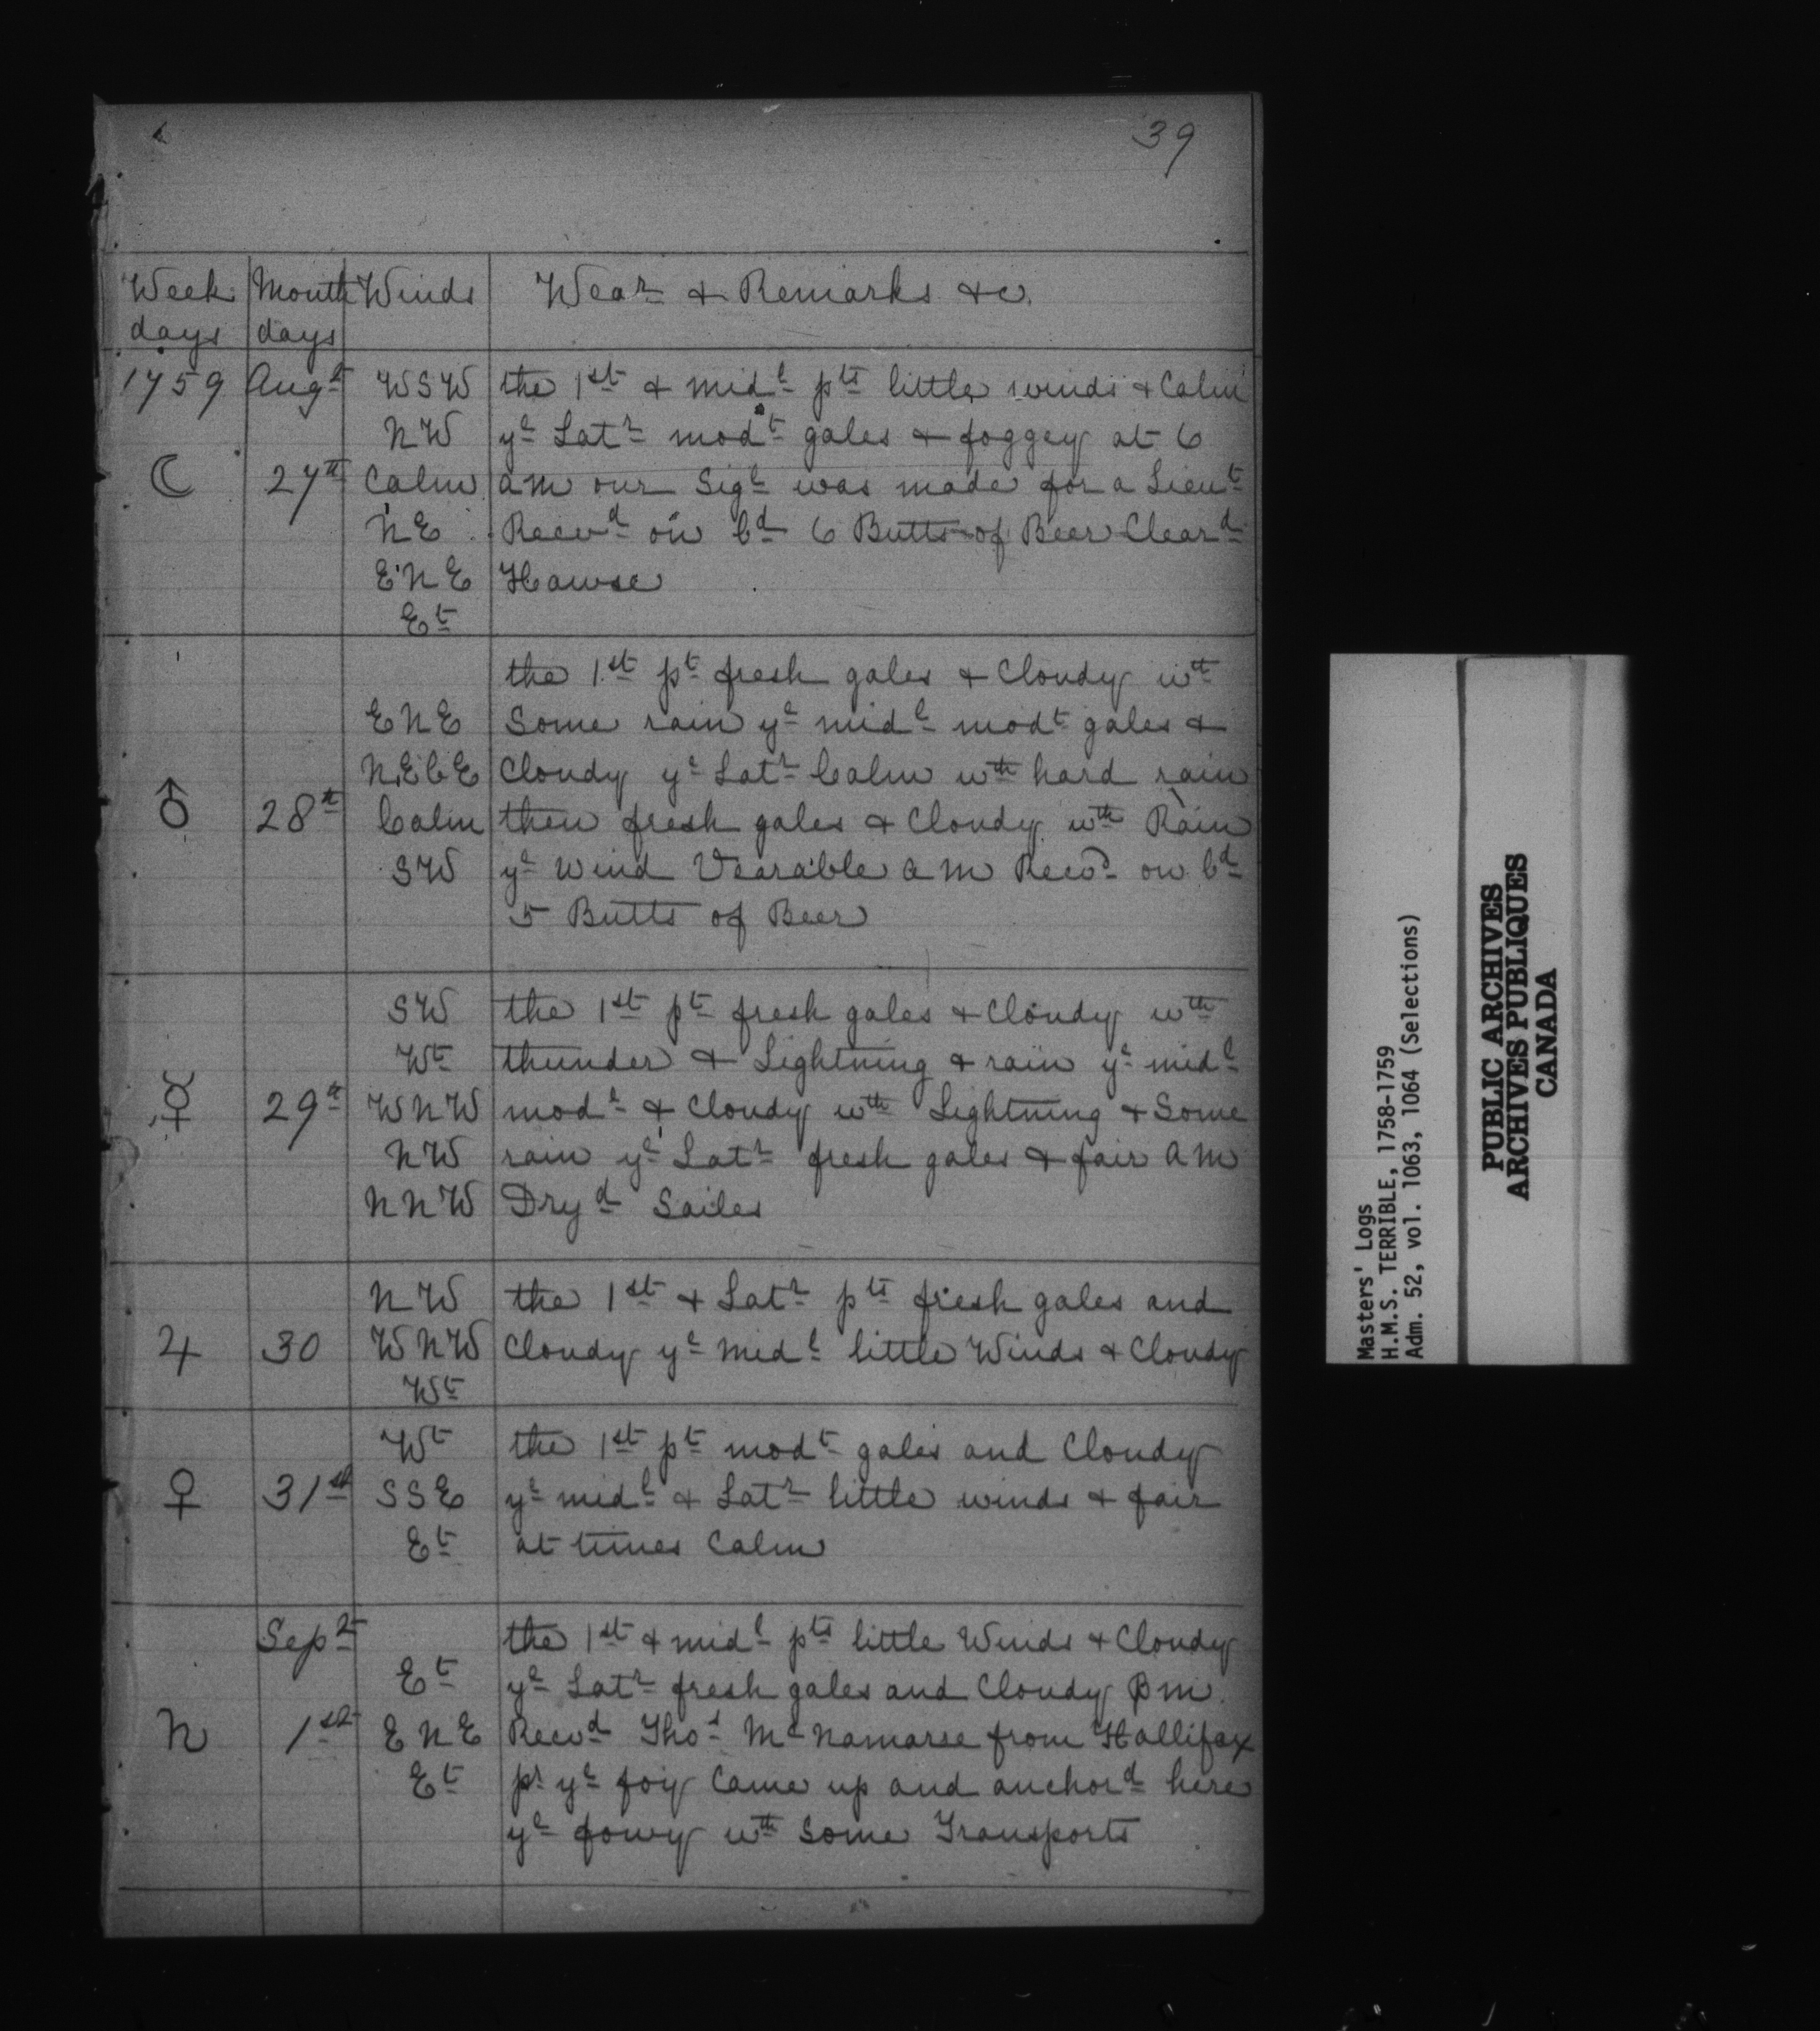 39
Week Month Winds Wear & Remarks &c
days days
1759 Augt WSW the 1st & midl pts little winds & Calm
NW ye Latr modt gales & foggey at 6
☾ 27th Calm am our Sigl was made for a Lieut
NE Recvd on bd 6 Butts of Beer Cleard
ENE Hawse
Et
the 1st pt fresh gales & Cloudy wth
ENE Some rain ye midl modt gales &
NEbE Cloudy ye Latr Calm wth hard rain
♂ 28th Calm then fresh gales & Cloudy wth Rain
SW ye Wind Vearable am Recvd on bd
5 Butts of Beer
SW the 1st pt fresh gales & Cloudy wth
Wt thunder & Lightning & rain ye midl
☿ 29th WNW modt & Cloudy wth Lightning & Some
NW rain ye Latr fresh gales & fair am
NNW Dryd Sailes
NW the 1st & Latr pts fresh gales and
♃ 30 WNW Cloudy ye Midl little Winds & Cloudy
Wt
Wt the 1st pt modt gales and Cloudy
♀ 31st SSE ye midl & Latr little winds & fair
Et at times Calm
Sepr the 1st & midl pts little Winds & Cloudy
Et ye Latr fresh gales and Cloudy Pm
♄ 1st ENE Recvd Thos Mc Namarse from Hallifax
Et pr ye foiy Came up and anchord here
ye fowy wth Some Transports
Masters' Logs
H.M.S. TERRIBLE, 1758-1759
Adm. 52, vol. 1063, 1064 (Selections)
PUBLIC ARCHIVES
ARCHIVES PUBLIQUES
CANADA